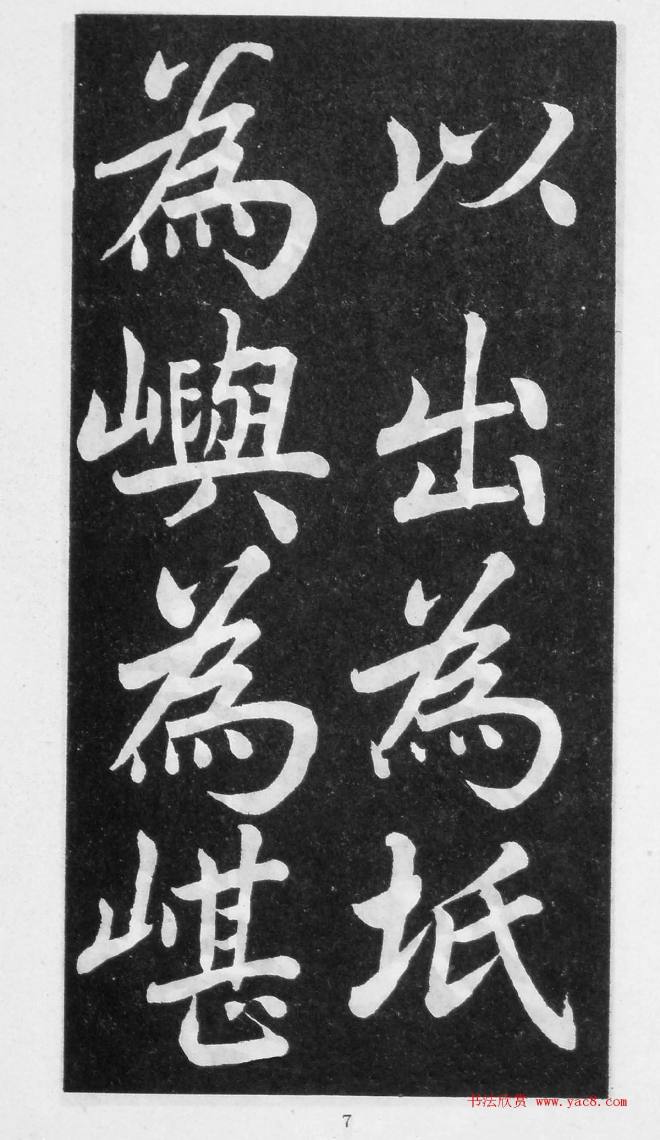 以出為坻
為嶼為嵁
书法欣赏 www.yac8.com
7